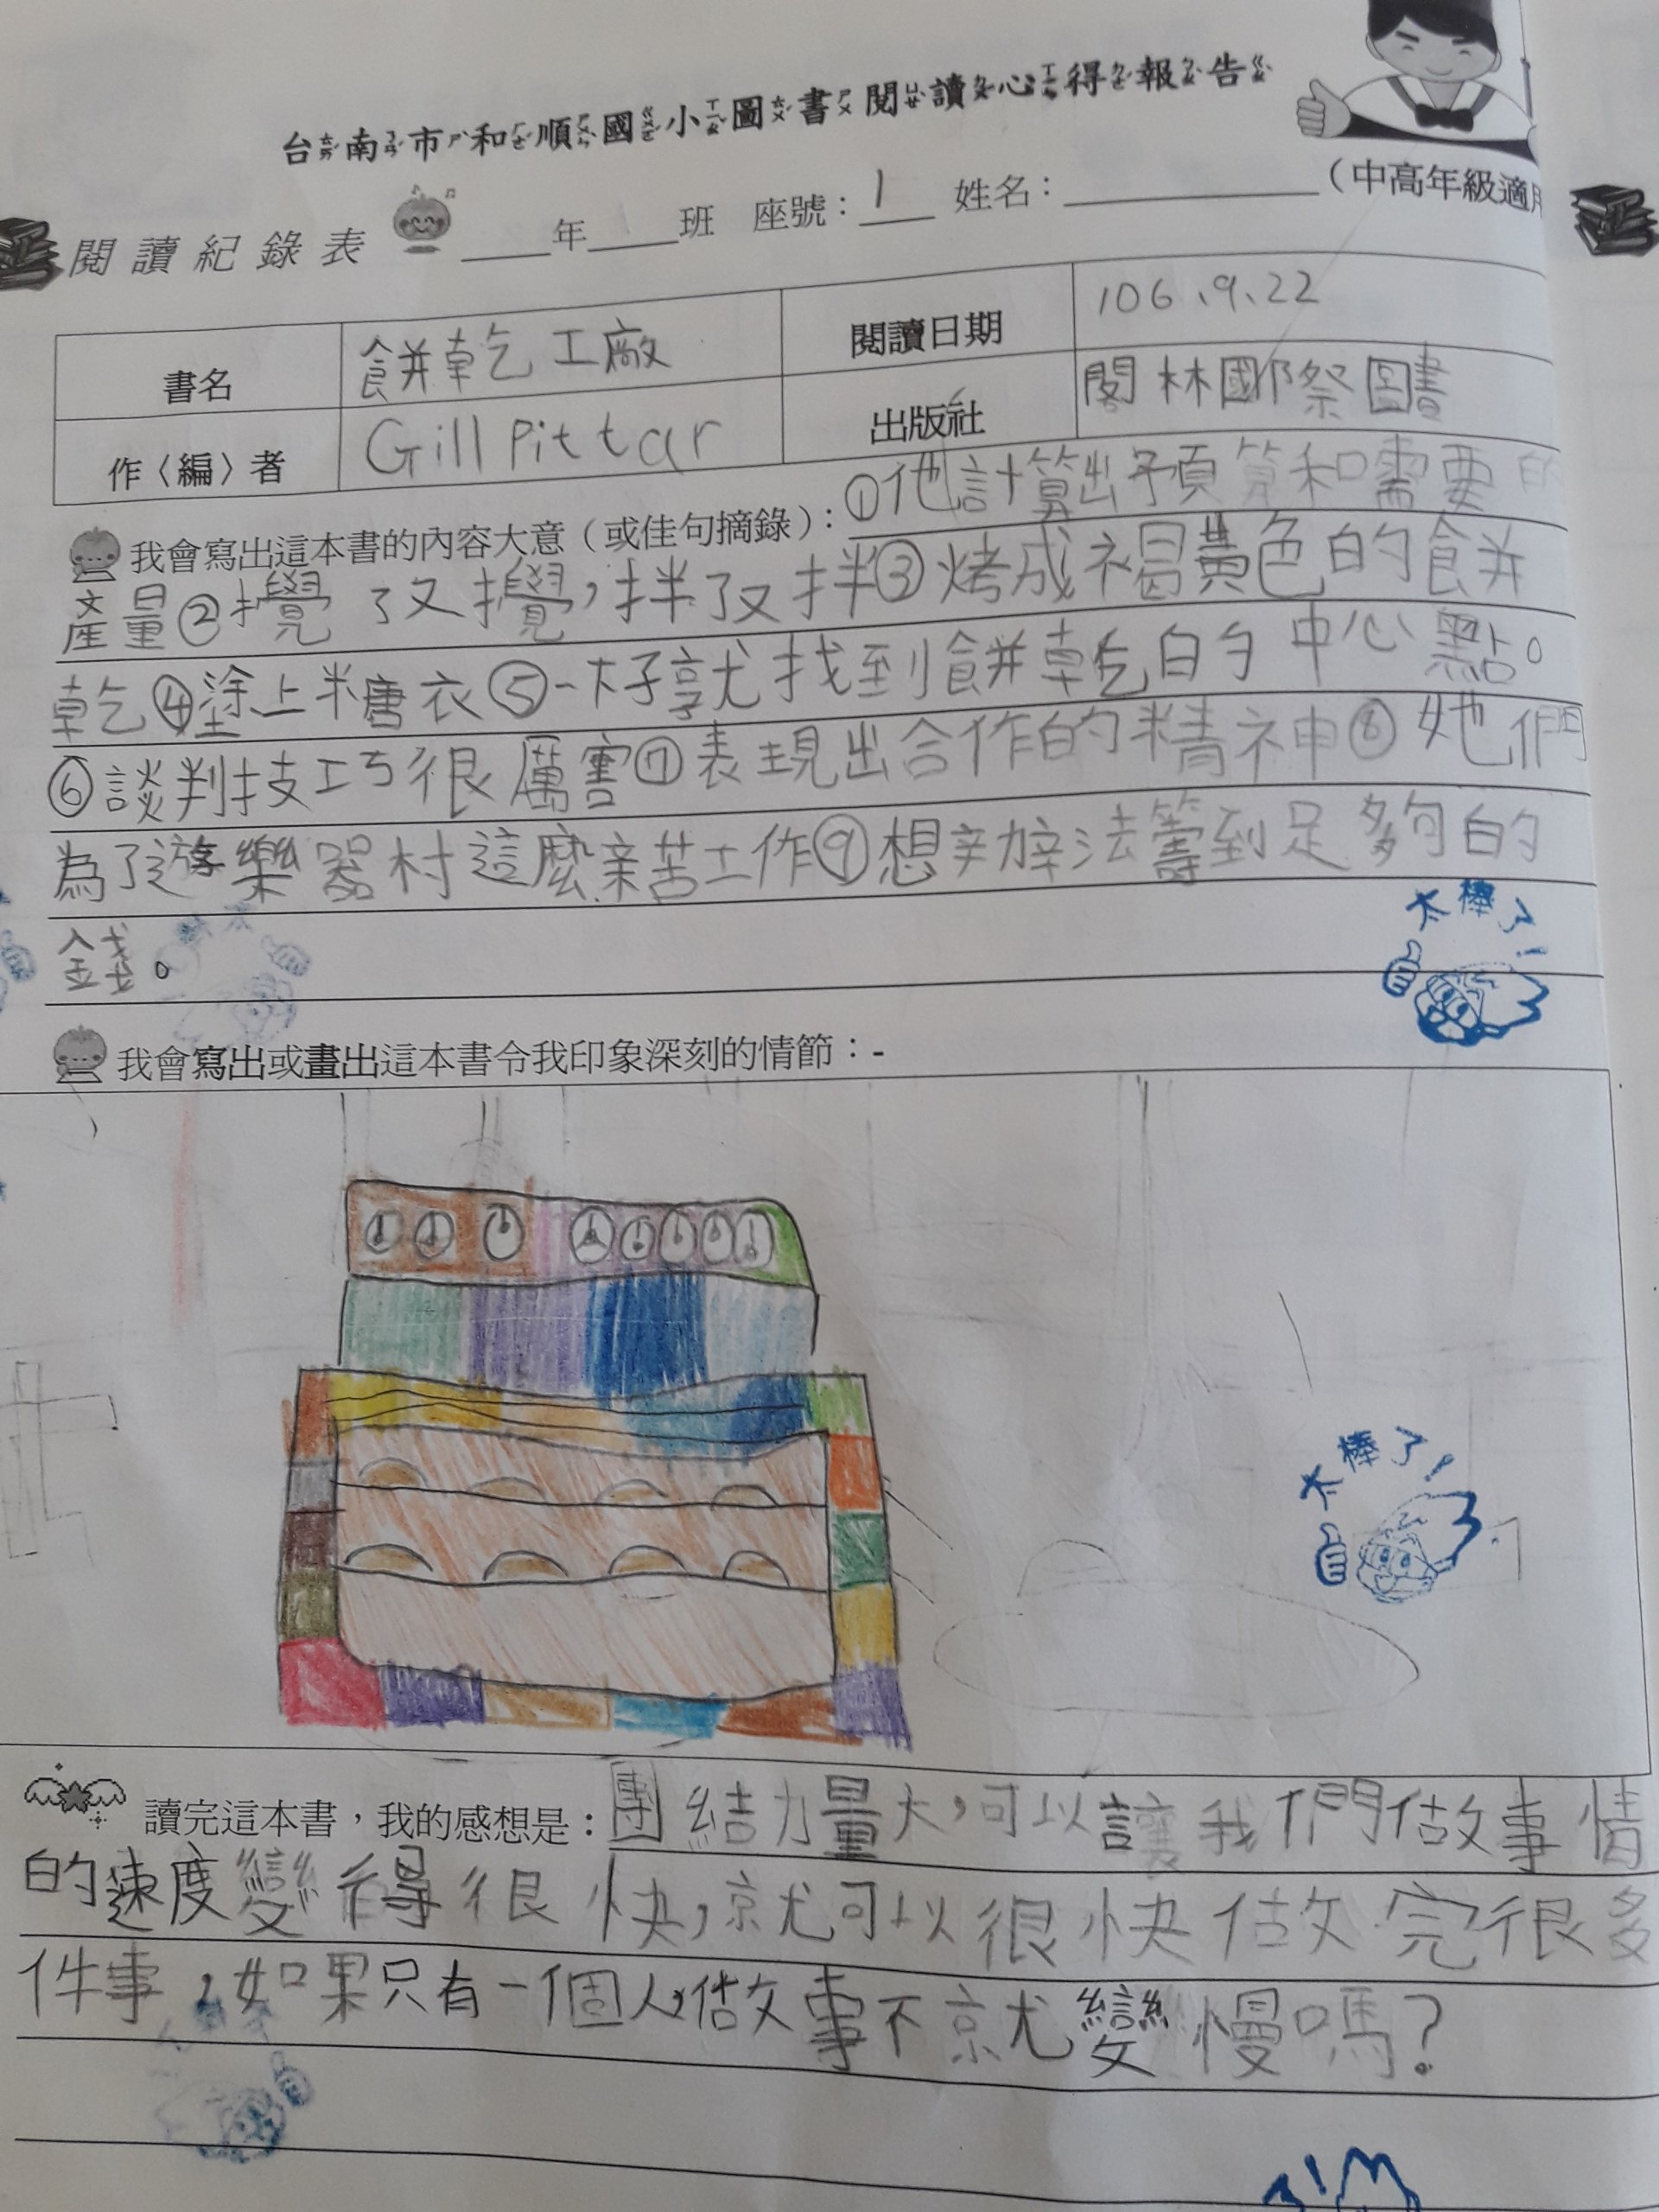 台南市和順國小圖書閱讀心得報告
閱讀紀錄表 ___年___班 座號：1 姓名：______（中高年級適用
書名 餅乾工廠 閱讀日期 106.9.22
作〈編〉者 Gill Pittar 出版社 閣林國際圖書
我會寫出這本書的內容大意（或佳句摘錄）：①他計算出預算和需要的
產量②攪了又攪，拌了又拌③烤成褐黃色的餅
乾④塗上糖衣⑤一下子就找到餅乾的中心點。
⑥談判技巧很厲害⑦表現出合作的精神⑧她們
為了遊樂器材這麼辛苦工作⑨想辦法籌到足夠的
錢。
太棒了！
我會寫出或畫出這本書令我印象深刻的情節：-
太棒了！
讀完這本書，我的感想是：團結力量大，可以讓我們做事情
的速度變得很快，就可以很快做完很多
件事，如果只有一個人做事不就變慢嗎？